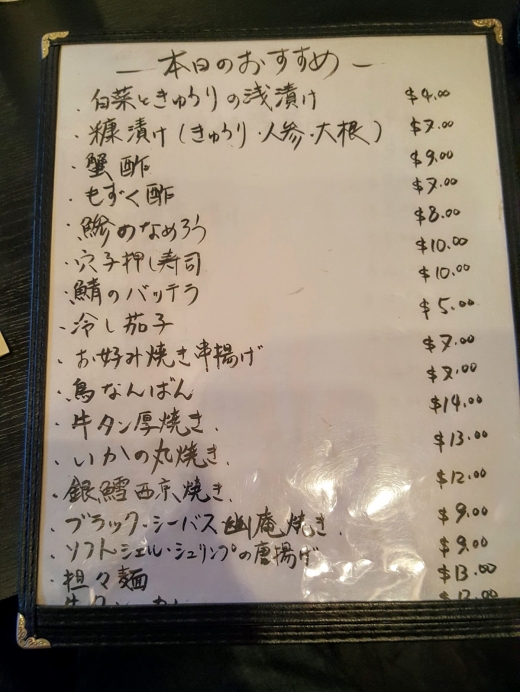 — 本日のおすすめ —
・白菜ときゅうりの浅漬け $4.00
・糠漬け(きゅうり・人参・大根) $7.00
・蟹酢 $9.00
・もずく酢 $7.00
・鯵のなめろう $8.00
・穴子押し寿司 $10.00
・鯖のバッテラ $10.00
・冷し茄子 $5.00
・お好み焼き串揚げ $7.00
・鳥なんばん $7.00
・牛タン厚焼き. $14.00
・いかの丸焼き. $13.00
・銀鱈西京焼き. $12.00
・ブラック・シーバス幽庵焼き. $9.00
・ソフトシェル・シュリンプの唐揚げ $9.00
・担々麺 $13.00